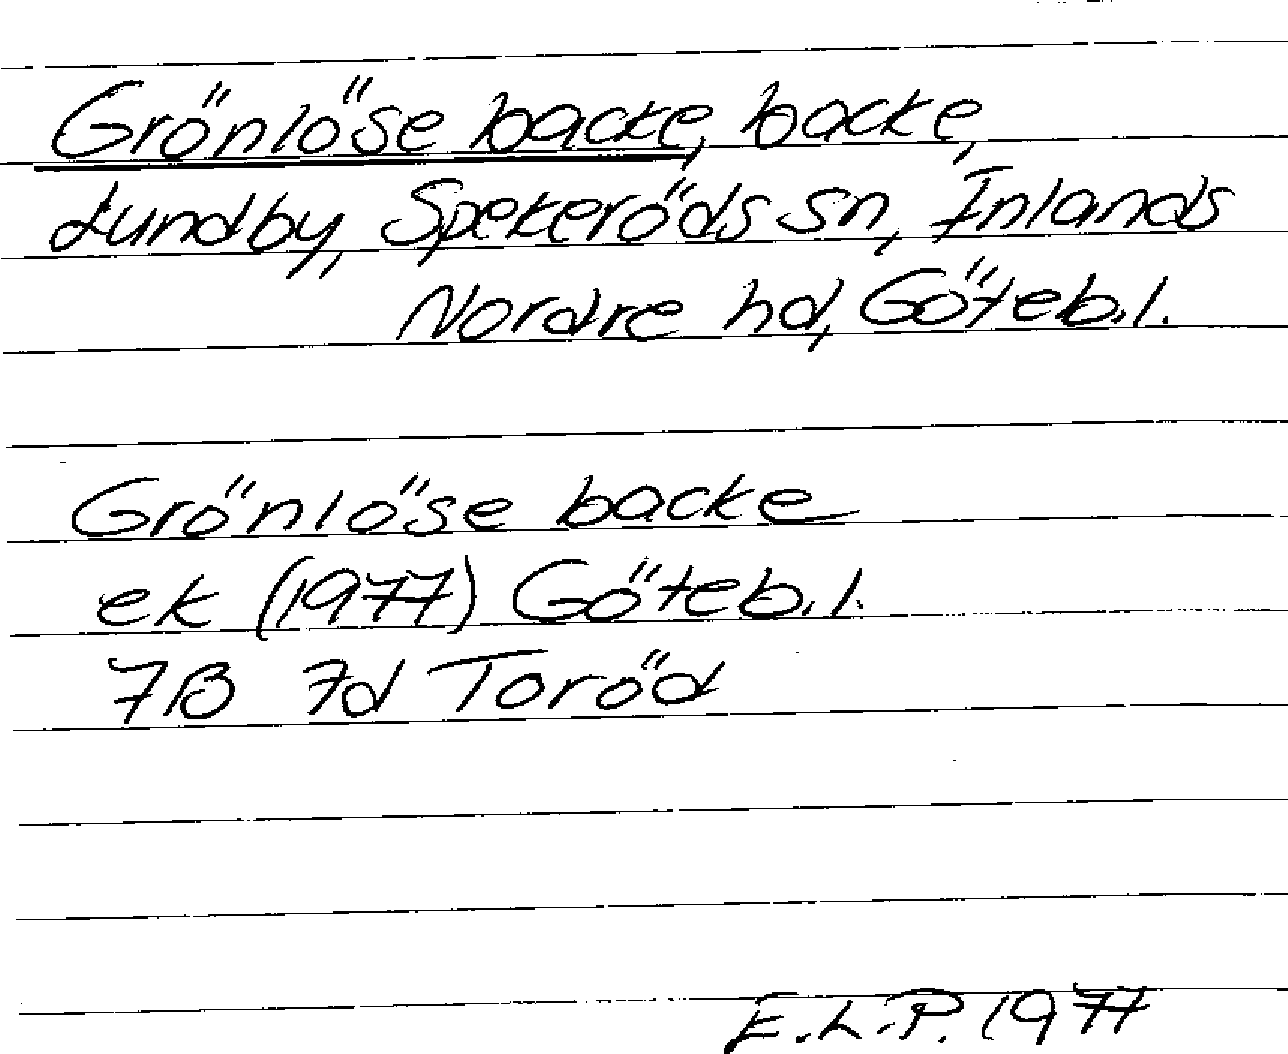 Grönlöse backe, backe,
Lundby, Spekeröds sn, Inlands
Nordre hd, Göteb.l.
Grönlöse backe
ek (1977) Göteb.l.
7B 7d Toröd
E.L.P. 1977